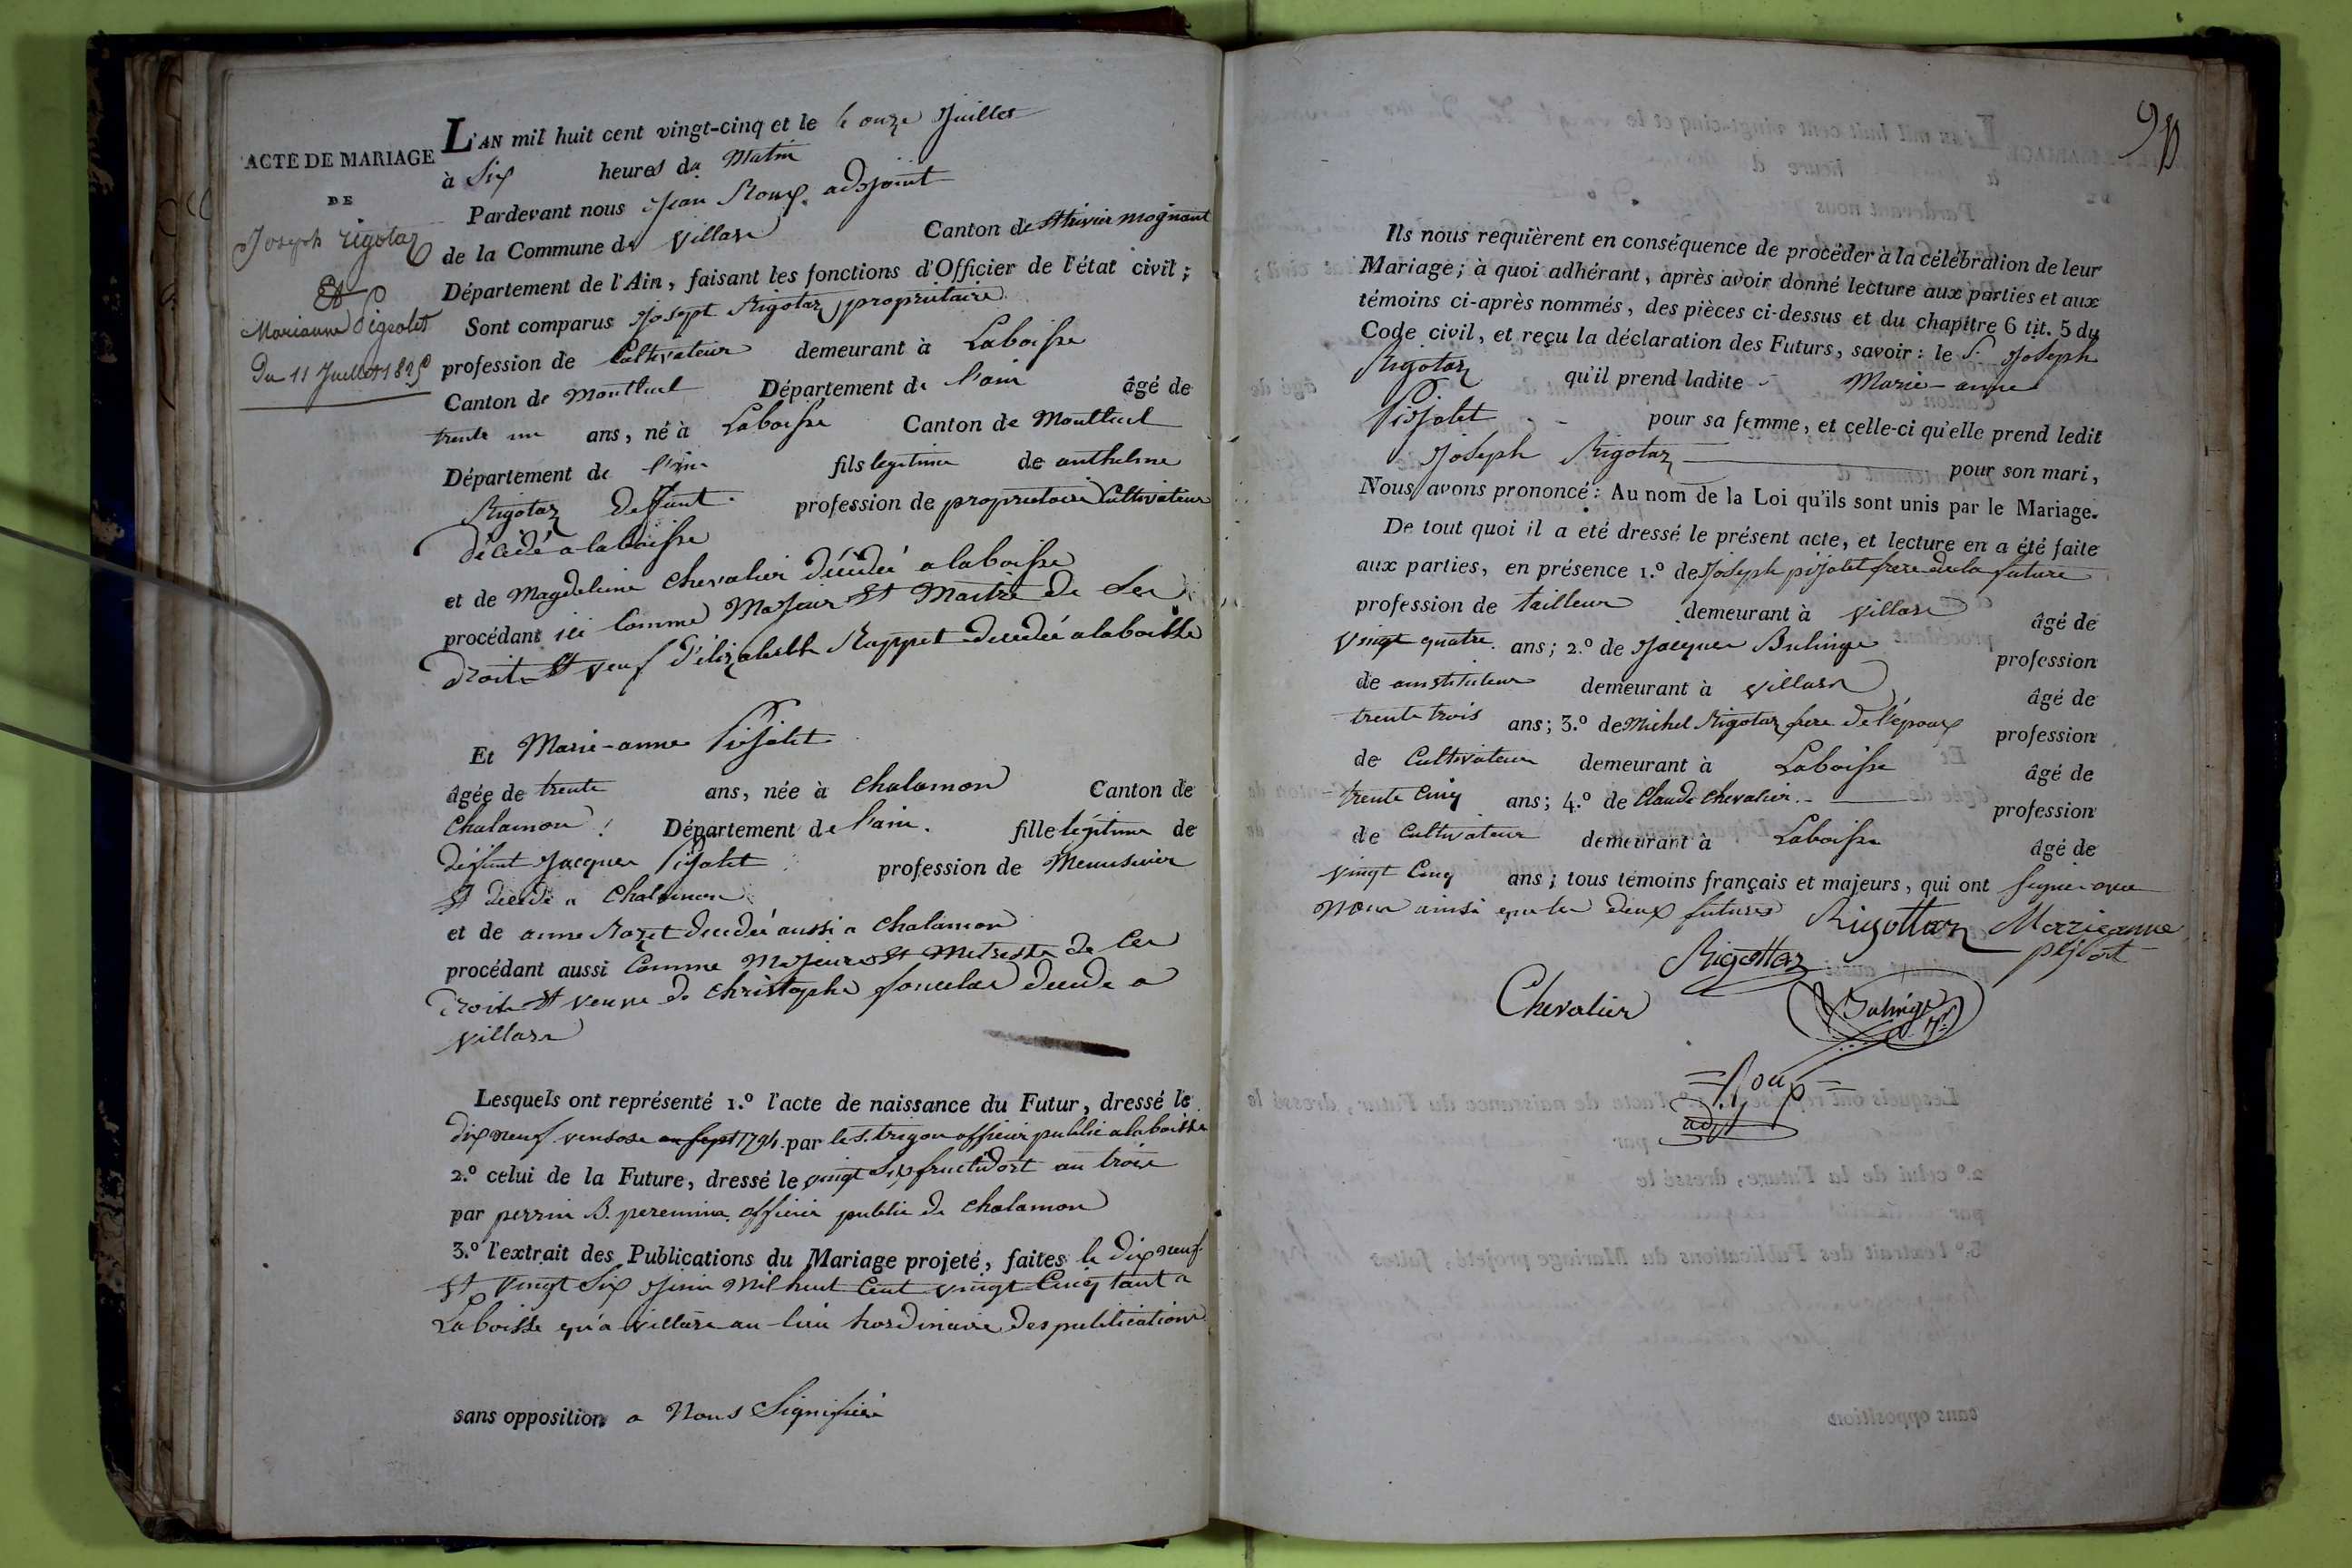 ACTE DE MARIAGE
DE
Joseph rigotaz
Et
Marianne Pigeolet
Du 11 Juillet 1825
L'AN mil huit cent vingt-cinq et le le onze Juillet
à Six heures du Matin
Pardevant nous Jean Roux adjoint
de la Commune de Villars Canton de St trivier mognant
Département de l'Ain, faisant les fonctions d'Officier de l'état civil;
Sont comparus Josept Rigotaz propriétaire
profession de Cultivateur demeurant à Laboisse
Canton de Montluel Département de l'ain âgé de
trente un ans, né à Laboisse Canton de Montluel
Département de l'ain fils legitime de anthelme
Rigotaz deffunt profession de proprietaire Cultivateur
décédé a laboisse
et de Magdeleine Chevalier décédée a laboisse
procédant ici Comme Majeur Et Maitre de Ses
Droits Et veuf d'élizabelth Rappet decedée a laboisse
Et Marie-anne Pisjolet
âgée de trente ans, née à chalamon Canton de
Chalamon Département de l'ain fille légitime de
défunt Jacques Pisjolet profession de Menuisier
Et décédé a Chalamon
et de anne Rozet decedée aussi a chalamon
procédant aussi Comme Majeure Et Metresse de Ces
Droits Et veuve de christophe decede a
villars
Lesquels ont représenté 1.º l'acte de naissance du Futur, dressé le
dix neuf ventose 1794 par le S. trigon officier public a laboisse
2.º celui de la Future, dressé le vingt Six fructidort an trois
par perrin B. officier public de chalamon
3.º l'extrait des Publications du Mariage projeté, faites le Dix neuf
Et vingt Six Juin Mil huit Cent vingt Cinq tant a
Laboisse qu'a villars au lieu hordinaire des publications
sans opposition a Nous Signifiée
90
Ils nous requièrent en conséquence de procéder à la célébration de leur
Mariage; à quoi adhérant, après avoir donné lecture aux parties et aux
témoins ci-après nommés, des pièces ci-dessus et du chapitre 6 tit. 5 du
Code civil, et reçu la déclaration des Futurs, savoir: le S. Joseph
Rigotaz qu'il prend ladite Marie-anne
Pisjolet pour sa femme, et celle-ci qu'elle prend ledit
Joseph Rigotaz pour son mari,
Nous avons prononcé: Au nom de la Loi qu'ils sont unis par le Mariage.
De tout quoi il a été dressé le présent acte, et lecture en a été faite
aux parties, en présence 1.º de Joseph pisjolet frere de la future
profession de tailleur demeurant à villars âgé de
vingt quatre ans; 2.º de Jacques Bulinge profession
de amstituteur demeurant à villars âgé de
trente trois ans; 3.º de Michel Rigotaz frere de l'époux profession
de Cultivateur demeurant à Laboisse âgé de
trente Cinq ans; 4.º de Claude Chevalier profession
de Cultivateur demeurant à Laboisse âgé de
vingt Cinq ans; tous témoins français et majeurs, qui ont signer avec
nous ainsi que les deux futures Rigottaz Marieanne
Rigottaz pijolet
Chevalier Bulinge
Roux
adj.